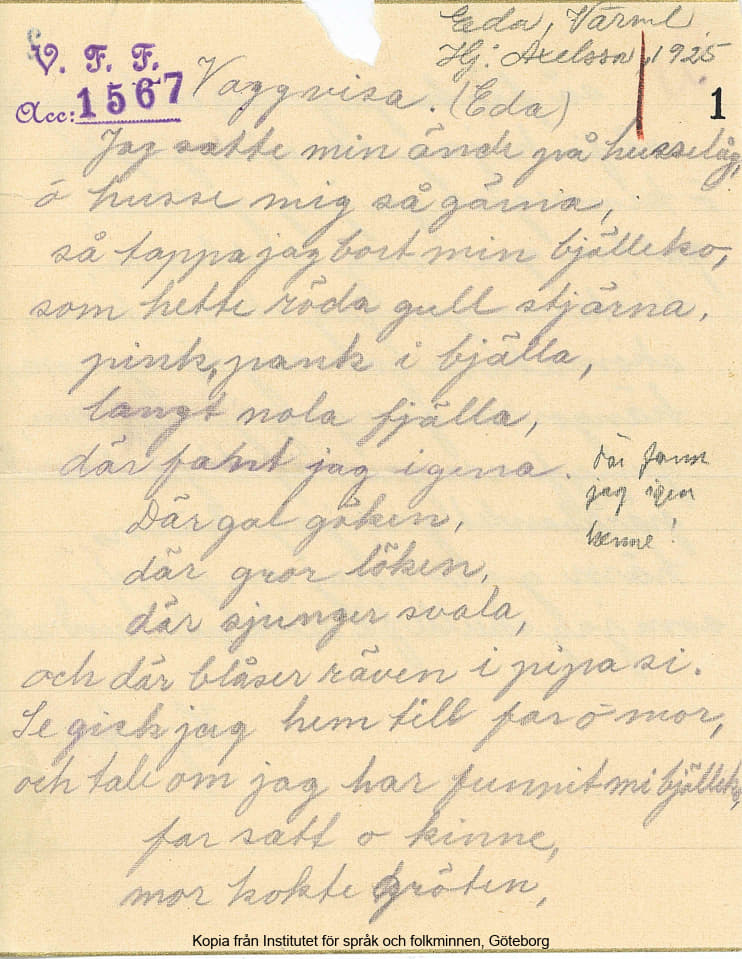 Eda, Värml.
Hj: Axelsson, 1925
V. F. F.
Acc: 1567
1
Vaggvisa. (Eda)
Jag satte min ände på
ö husse mig så gärna,
så tappa jag bort min bjälleko,
som hette röda gull stjärna,
pink, pank i bjälla,
langt nola fjälla,
där fant jag igena.
där fann
jag igen
henne!
Där gol göken,
där gror löken,
där sjunger svala,
och där blåser räven i pipa si.
Se gick jag hem till far ö mor,
och tale om jag har funnit mi bjälleko,
far satt o kinne,
mor kokte gröten,
Kopia från Institutet för språk och folkminnen, Göteborg